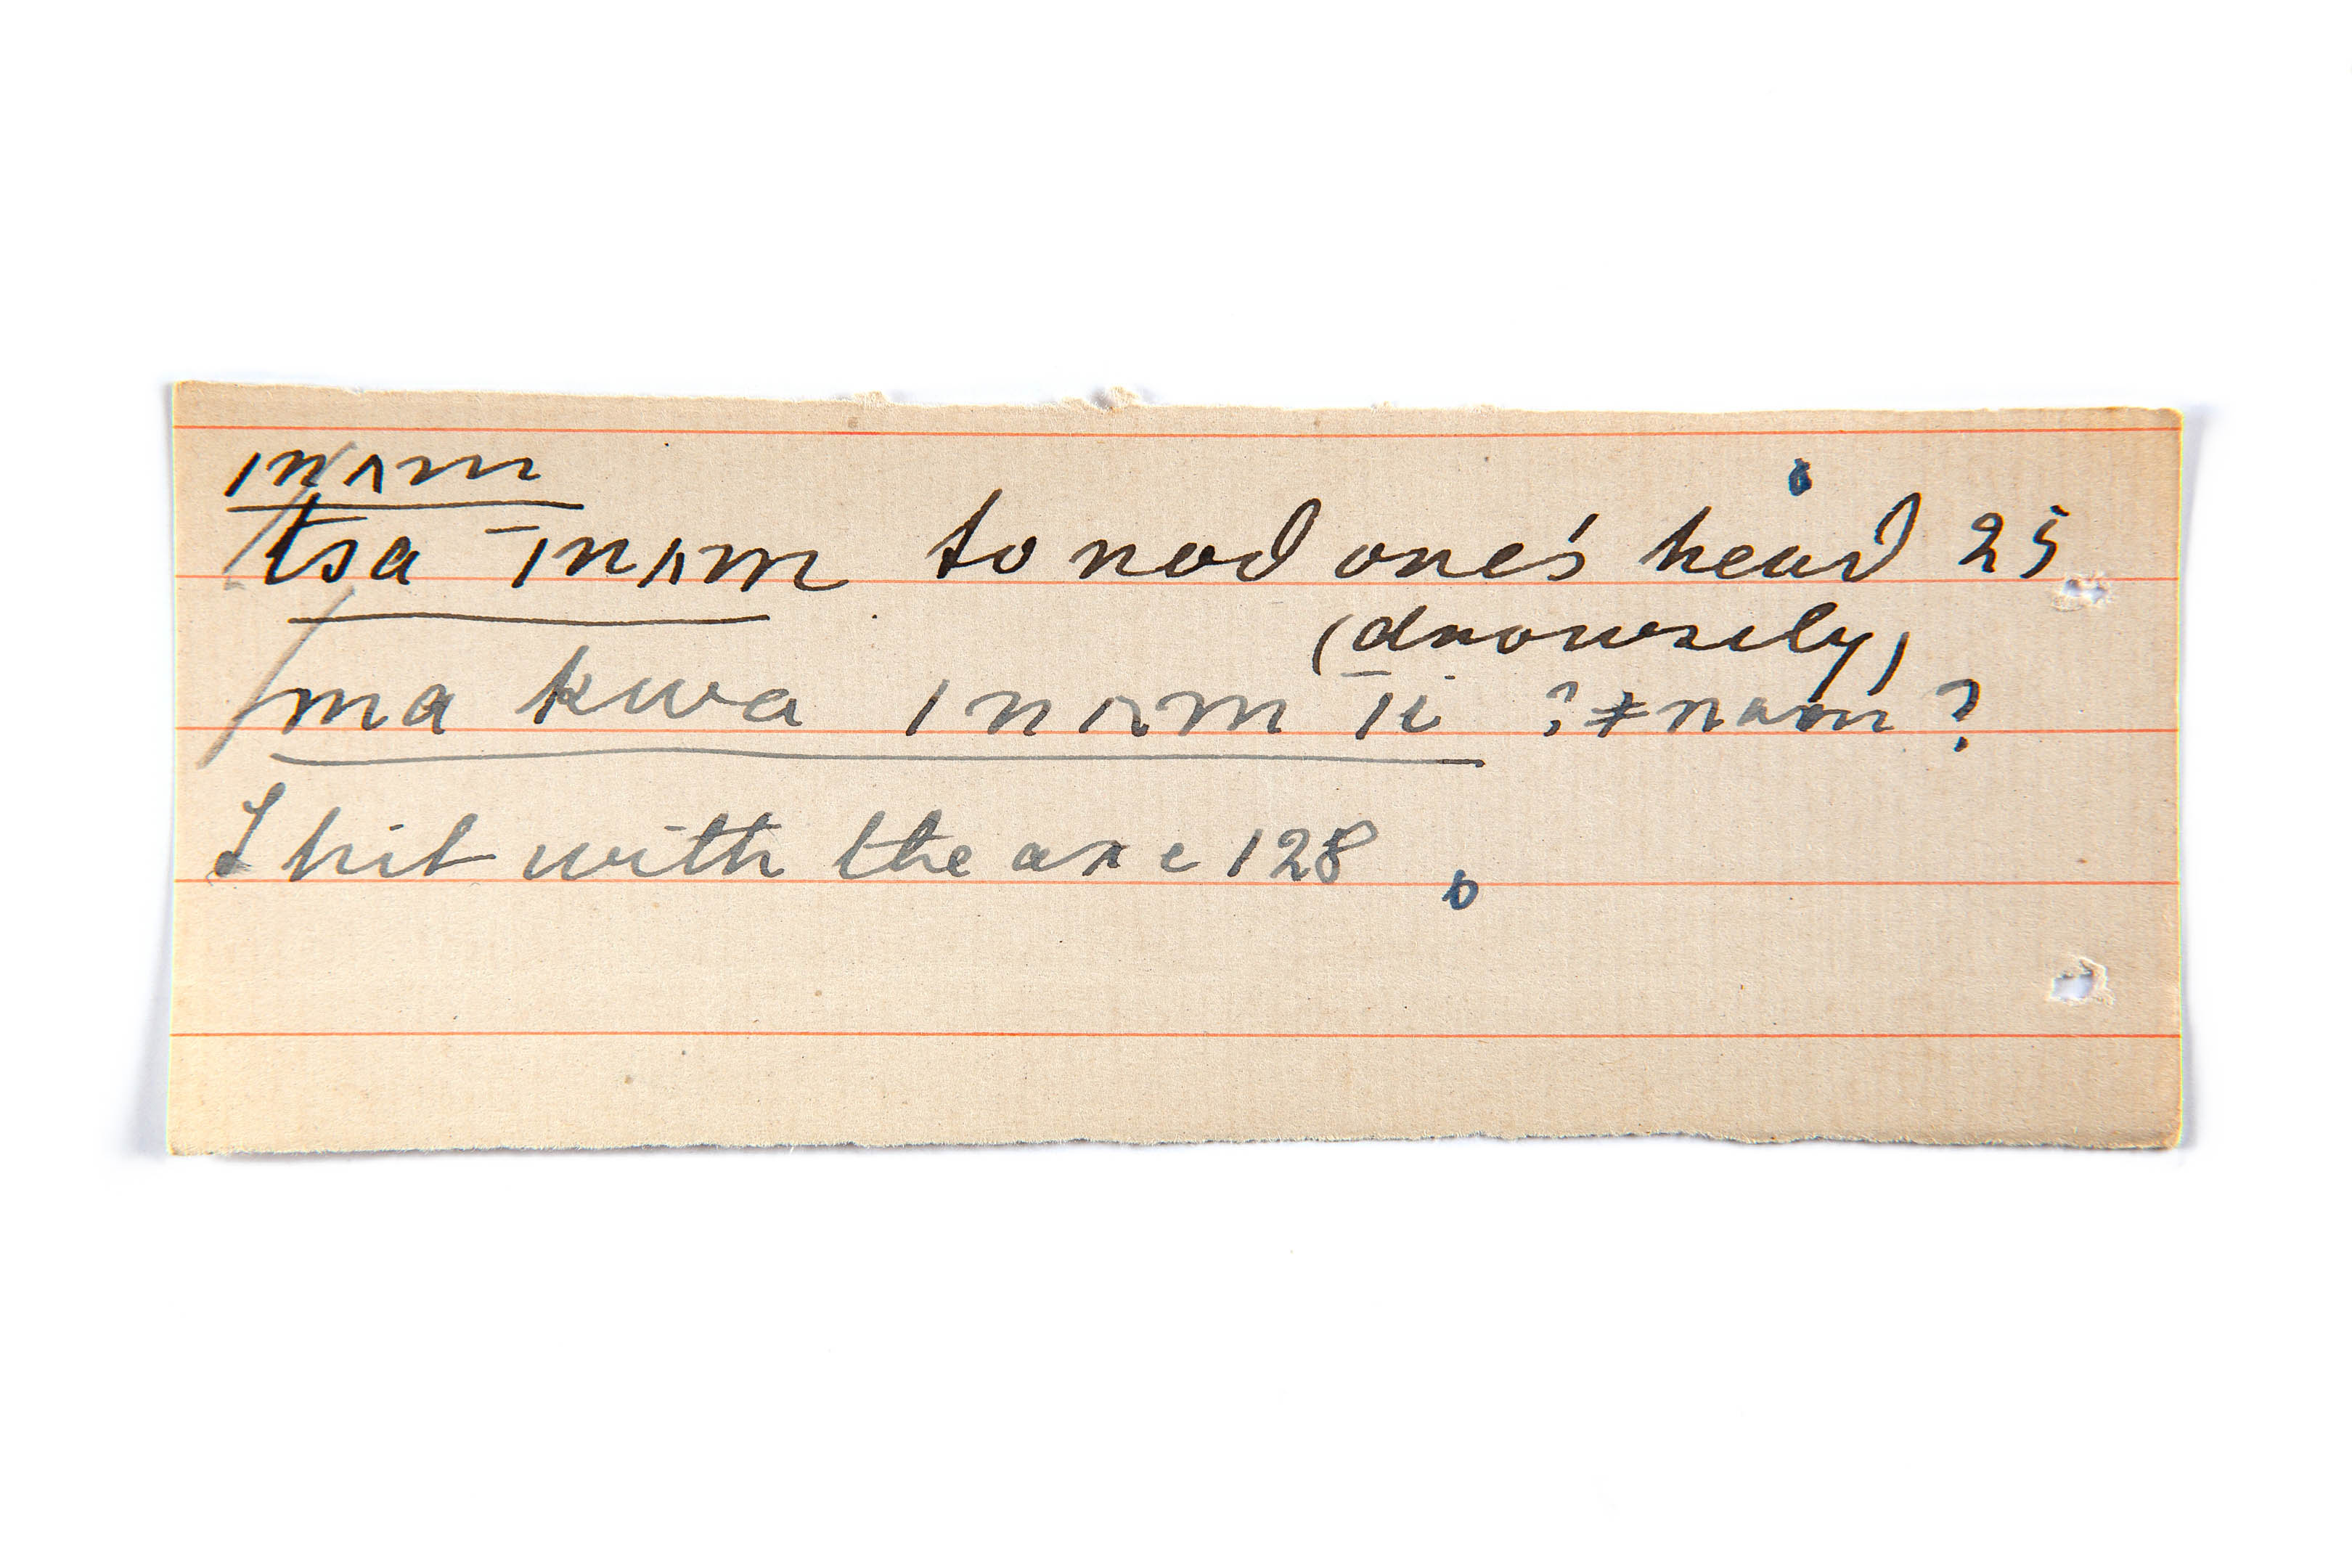 ınʌm
tsa ˉınʌm to nod one's head 25
(drowsily)
ma kwa ınʌm ˉıi ?ǂnʌm?
I hit with the axe 128